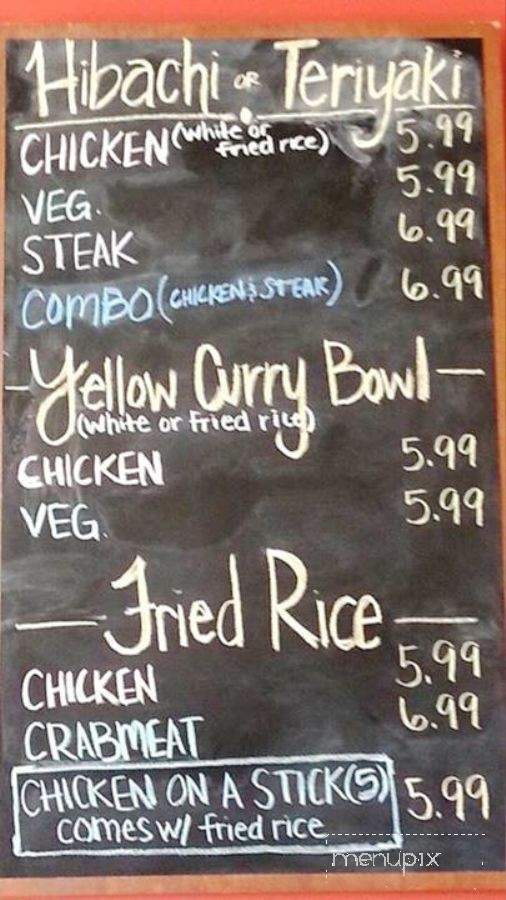 Hibachi OR Teriyaki
CHICKEN (white or fried rice) 5.99
VEG. 5.99
STEAK 6.99
COMBO (CHICKEN & STEAK) 6.99
Yellow Curry Bowl
(white or fried rice)
CHICKEN 5.99
VEG. 5.99
Fried Rice
CHICKEN 5.99
CRABMEAT 6.99
CHICKEN ON A STICK (5) 5.99
comes w/ fried rice
menupix